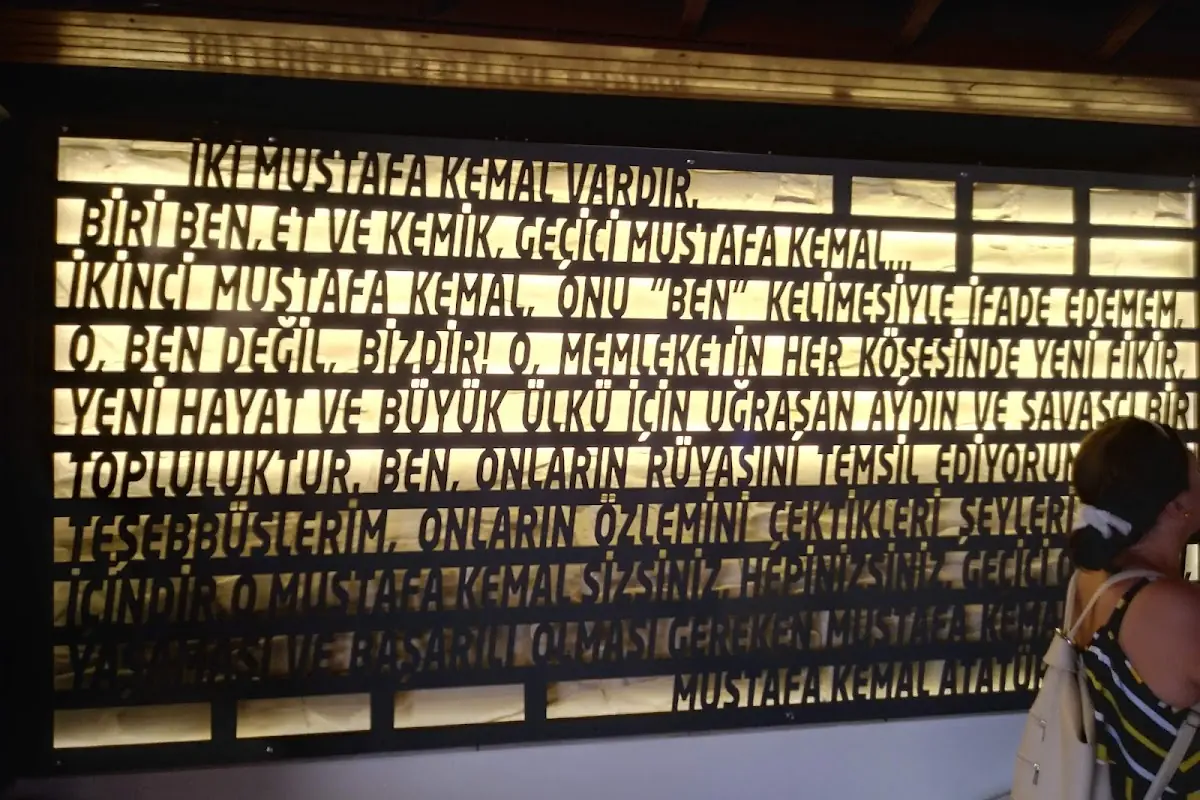 İKİ MUSTAFA KEMAL VARDIR.
BİRİ BEN, ET VE KEMİK, GEÇİCİ MUSTAFA KEMAL...
İKİNCİ MUSTAFA KEMAL, ONU "BEN" KELİMESİYLE İFADE EDEMEM,
O, BEN DEĞİL, BİZDİR! O, MEMLEKETİN HER KÖŞESİNDE YENİ FİKİR,
YENİ HAYAT VE BÜYÜK ÜLKÜ İÇİN UĞRAŞAN AYDIN VE SAVAŞÇI BİR
TOPLULUKTUR. BEN, ONLARIN RÜYASINI TEMSİL EDİYORUM
TEŞEBBÜSLERİM, ONLARIN ÖZLEMİNİ ÇEKTİKLERİ ŞEYLERİ
İÇİNDİR. O MUSTAFA KEMAL SİZSİNİZ, HEPİNİZSİNİZ. GEÇİCİ
YAŞAMASI VE BAŞARILI OLMASI GEREKEN MUSTAFA KEMA
MUSTAFA KEMAL ATATÜR